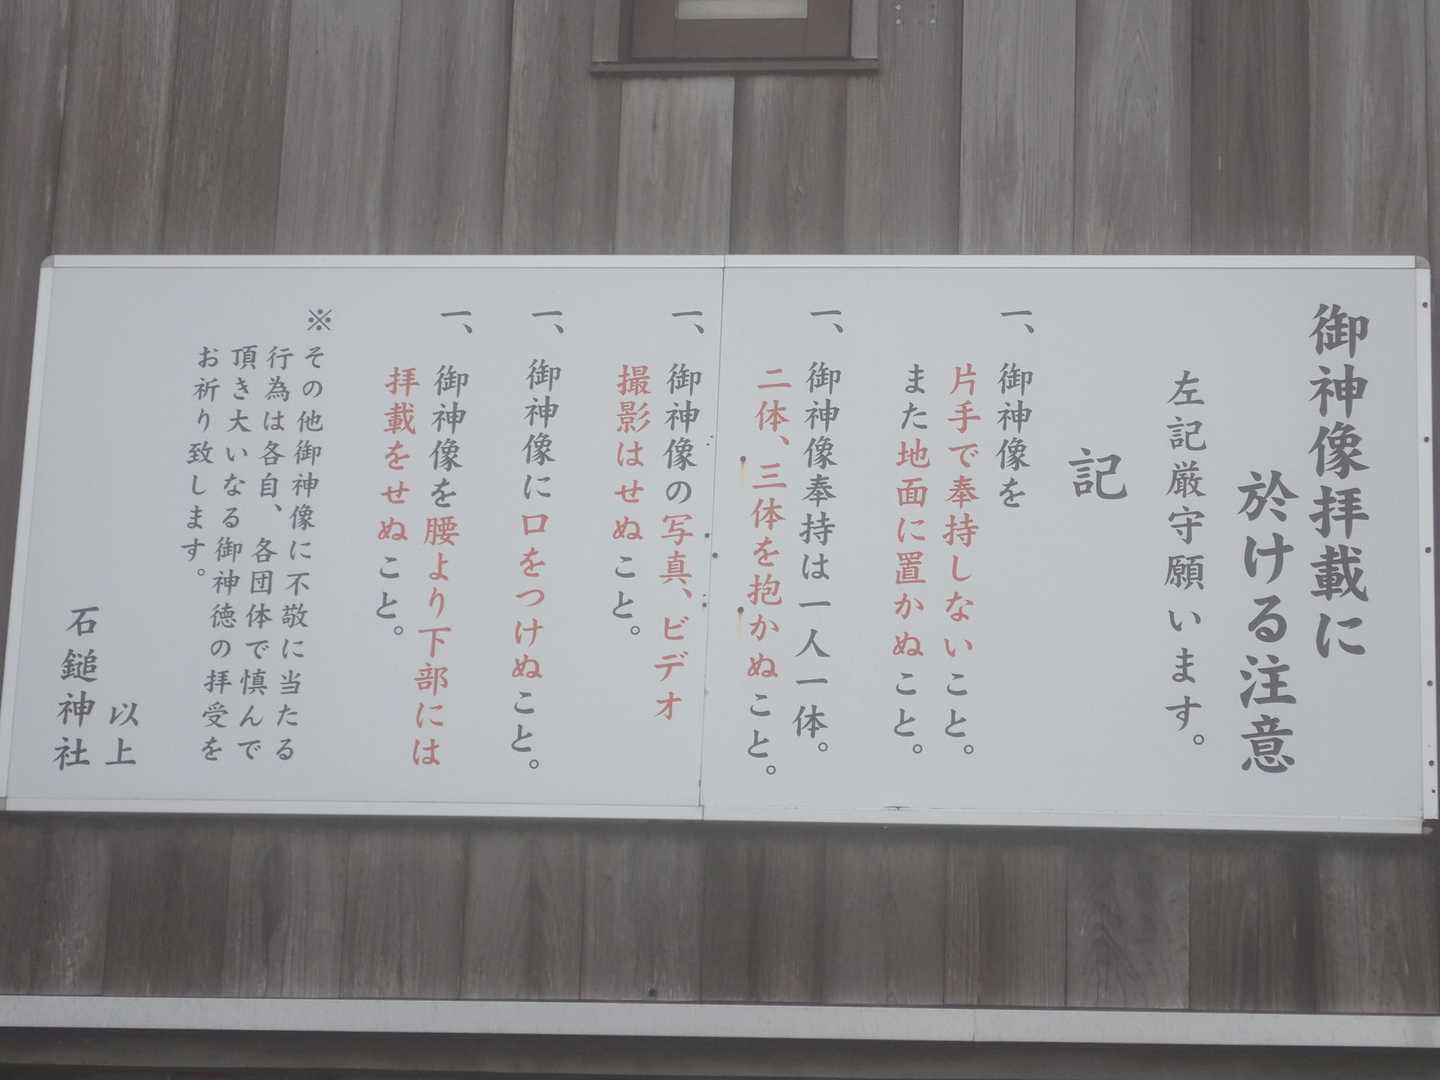 御神像拝載に
於ける注意
左記厳守願います。
記
一、御神像を
片手で奉持しないこと。
また地面に置かぬこと。
一、御神像奉持は一人一体。
二体、三体を抱かぬこと。
一、御神像の写真、ビデオ
撮影はせぬこと。
一、御神像に口をつけぬこと。
一、御神像を腰より下部には
拝載をせぬこと。
※その他御神像に不敬に当たる
行為は各自、各団体で慎んで
頂き大いなる御神徳の拝受を
お祈り致します。
以上
石鎚神社